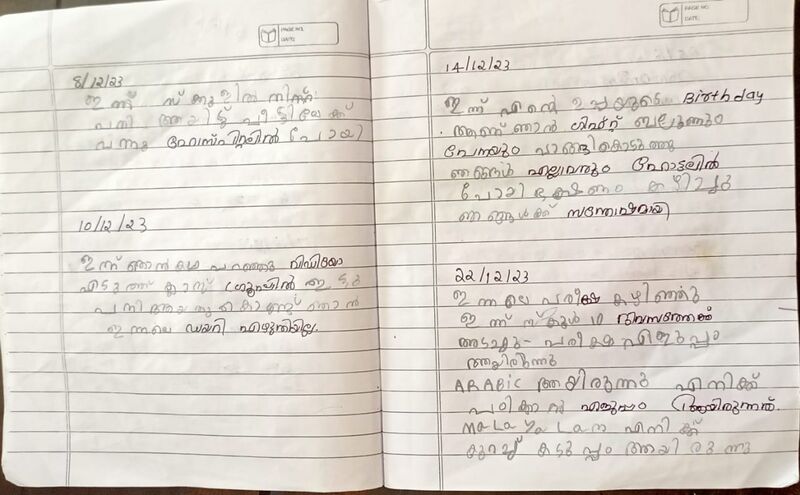 PAGE NO.
DATE:
8/12/23
ഇന്ന് സ്കൂളിൽ നിന്ന്
പനി ആയിട്ട് വീട്ടിലേക്ക്
വന്നു ഹോസ്പിറ്റലിൽ പോയി
10/12/23
ഇന്ന് ഞാൻ കഥ പറഞ്ഞു വിഡിയോ
എടുത്ത് ക്ലാസ്സ് ഗ്രൂപ്പിൽ ഇട്ടു
പനി ആയതുകൊണ്ട് ഞാൻ
ഇന്നലെ ഡയറി എഴുതിയില്ല.
PAGE NO.
DATE:
14/12/23
ഇന്ന് എന്റെ ഉപ്പയുടെ Birthday
ആണ് ഞാൻ ഗിഫ്റ്റ് ബലൂണും
പേനയും വാങ്ങികൊടുത്തു
ഞങ്ങൾ എല്ലാവരും ഹോട്ടലിൽ
പോയി ഭക്ഷണം കഴിച്ചു
ഞങ്ങൾക്ക് സന്തോഷമായി
22/12/23
ഇന്നലെ പരീക്ഷ കഴിഞ്ഞു
ഇന്ന് സ്കൂൾ 10 ദിവസത്തേക്ക്
അടച്ചു- പരീക്ഷ എളുപ്പം
ആയിരുന്നു
ARABiC ആയിരുന്നു എനിക്ക്
പഠിക്കാനു എളുപ്പം ആയിരുന്നത്.
MaLaYaLam എനിക്ക്
കുറച്ച് കടുപ്പം ആയിരുന്നു